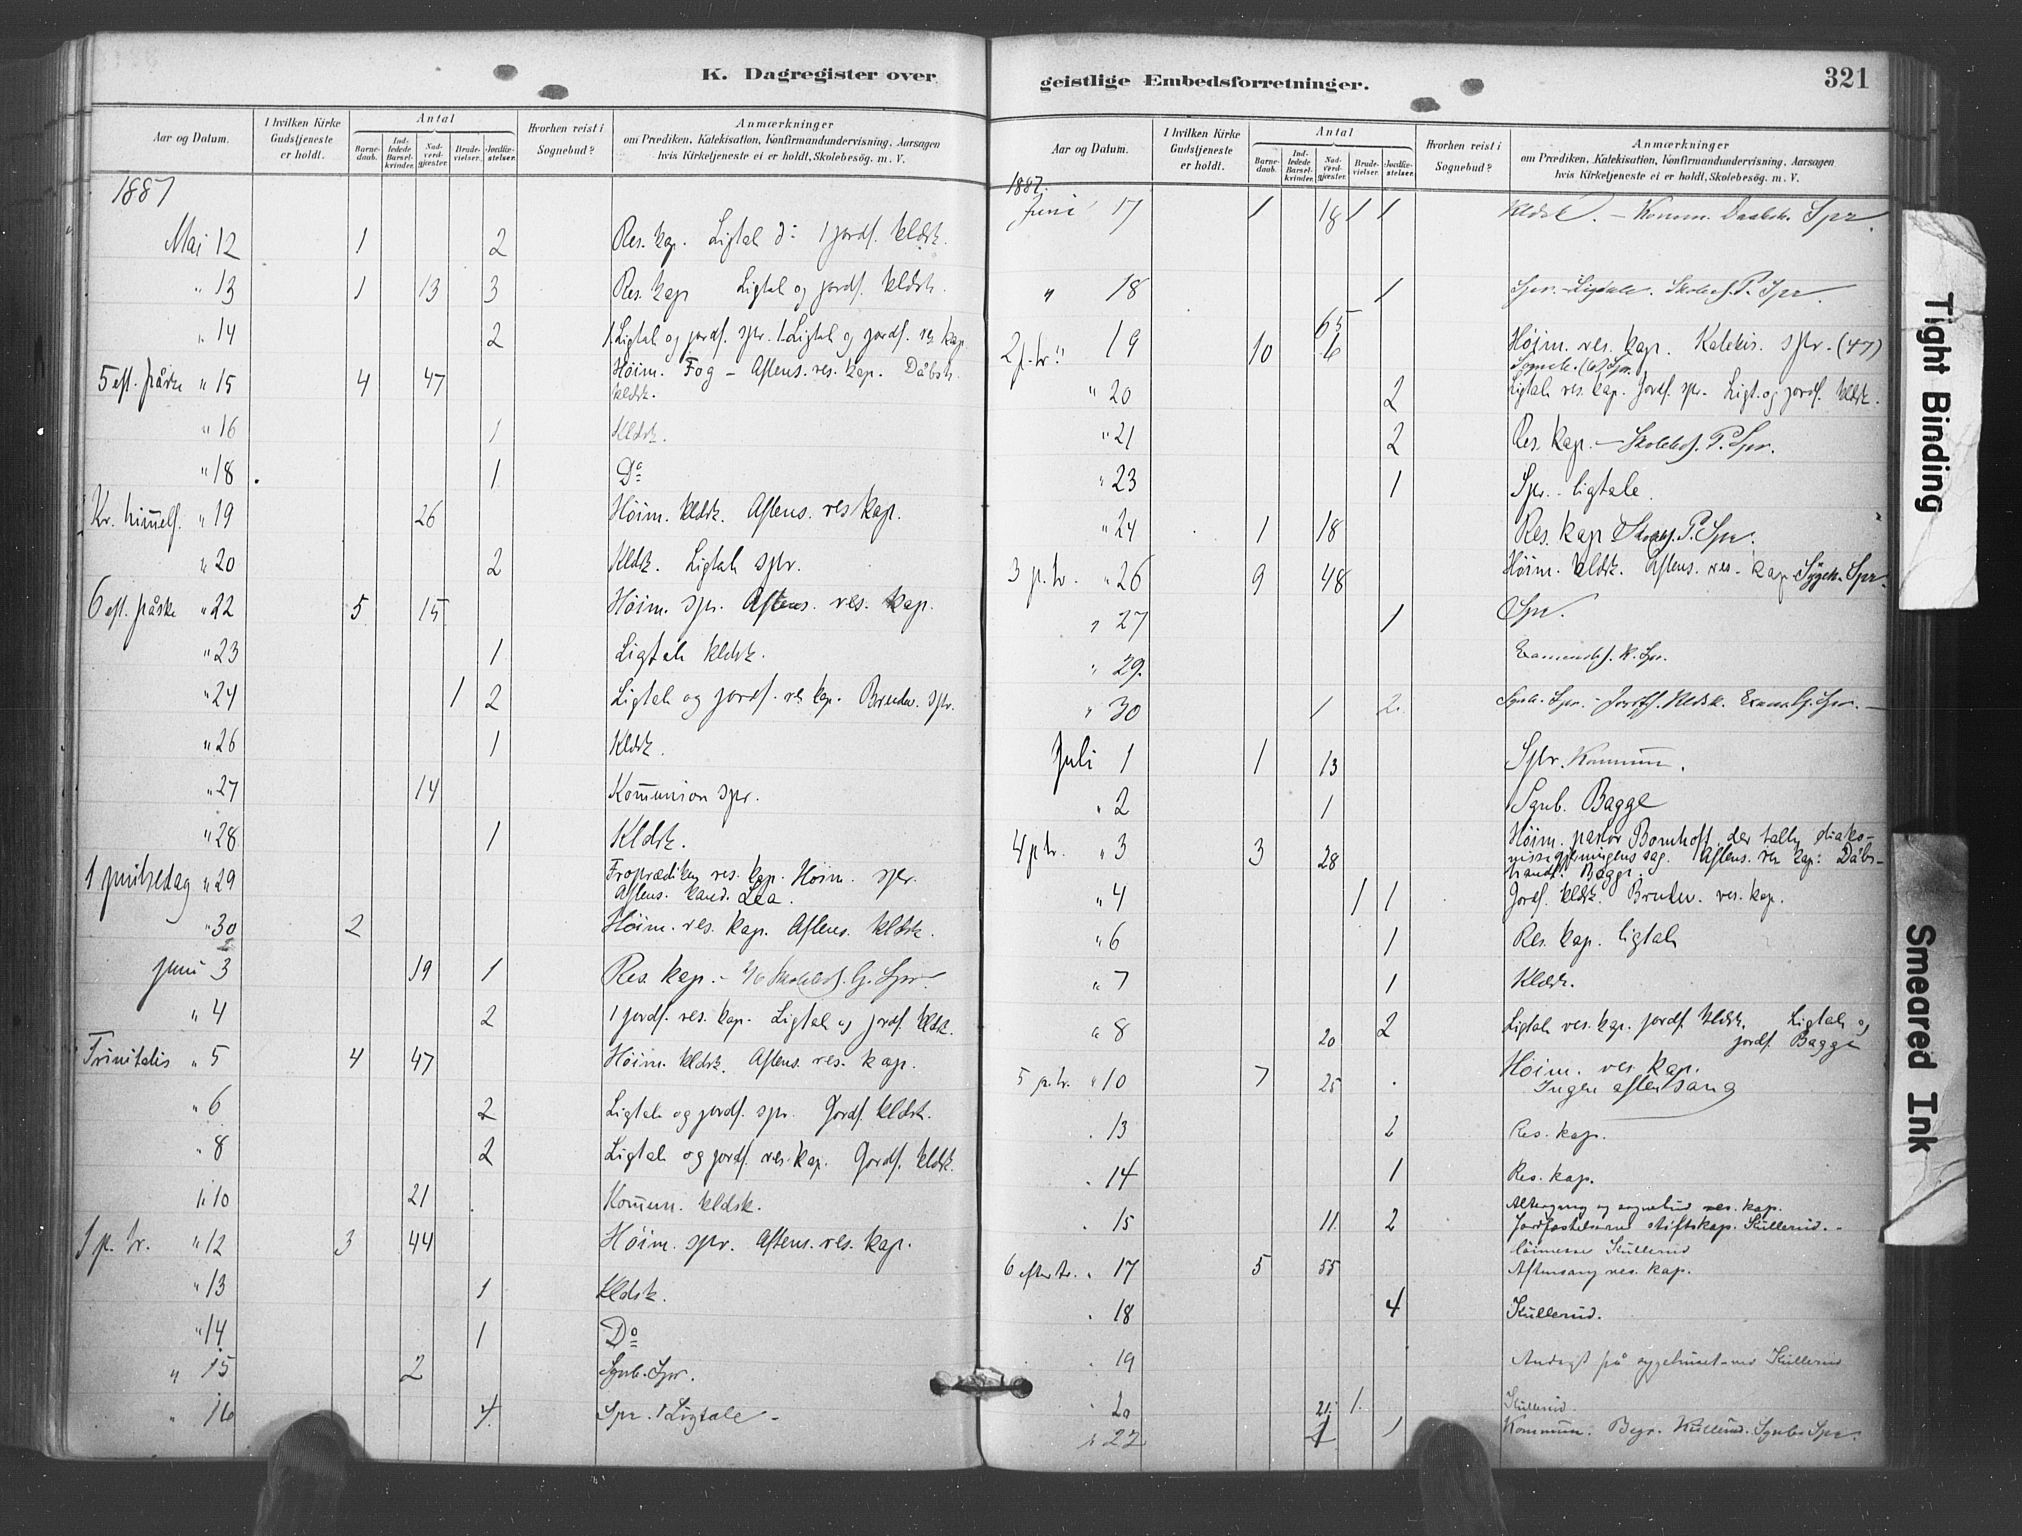 K. Dagregister over
Aar og Datum.
I hvilken Kirke Gudstjeneste er holdt.
Antal
Barnedaab.
Indledede Barselkvinder.
Nadverdgjester.
Brudevielser.
Jordfæstelser.
Hvorhen reist i Sognebud?
Anmærkninger
om Prædiken, Katekisation, Konfirmandundervisning, Aarsagen
hvis Kirketjeneste ei er holdt, Skolebesög. m. V.
1887
Mai 12 1 2 Res. kap. Ligtal 1 jordf. kldsk.
" 13 1 13 3 Res. kap Ligtal og jordf. kldsk.
" 14 2 1 Ligtal og jordf. spr. 1 Ligtal og jordf. res. kap.
5 eft. påske " 15 4 47 Höim. Fog - Aftens. res. kap. Dåbsh.
kldsk.
" 16 1 Kldsk.
" 18 1 Do
Kr. himmelf. " 19 26 Höim. kldsk. Aftens. res kap.
" 20 2 Kldsk. Ligtale spr.
6 eft. påske " 22 5 15 Höim. spr. Aftens. res. kap.
" 23 1 Ligtale kldsk.
" 24 1 2 Ligtale og jordf. res kap. Brudev. spr.
" 26 1 Kldsk.
" 27 14 Kommunion spr.
" 28 1 Kldsk.
1 pintsedag " 29 Froprædiken res. kap. Höim. spr.
Aftens. kand. Lea.
" 30 2 Höim. res. kap. Aftens. kldsk.
juni 3 19 1 Res. kap. - Spr.
" 4 2 1 jordf. res. kap. Ligtale og jordf. kldsk.
Trinitatis " 5 4 47 Höim. kldsk. Aftens. res. kap.
" 6 2 Ligtale og jordf. spr. Jordf. kldsk.
" 8 2 Ligtale og jordf. res. kap. Jordf. kldsk.
" 10 21 Kommun. kldsk.
1 p. tr. " 12 3 44 Höim. spr. Aftens. res. kap.
" 13 1 kldsk.
" 14 1 Do
" 15 2 Sgnb. Spr.
" 16 4 Spr. 1 Ligtale -
geistlige Embedsforretninger.
321
Aar og Datum.
I hvilken Kirke Gudstjeneste er holdt.
Antal
Barnedaab.
Indledede Barselkvinder.
Nadverdgjester.
Brudevielser.
Jordfæstelser.
Hvorhen reist i Sognebud?
Anmærkninger
om Prædiken, Katekisation, Konfirmandundervisning, Aarsagen
hvis Kirketjeneste ei er holdt, Skolebesög. m. V.
1887.
Juni 17 1 18 1 1 Kldsk. - Komm. Spr.
" 18 1 Spr. Ligtale. Skolebes. P. Spr.
2 p. tr " 19 10 65 6 Höim. res. kap. Katekis. spr. (47)
Sogneb. (6) Spr.
" 20 2 Ligtale res. kap. Jordf. spr. Ligt. og jordf. kldsk.
" 21 2 Res. kap. - Skolebes. P. Spr.
" 23 1 Spr. - ligtale.
" 24 1 18 Res. kap Skolebes. P. Spr.
3 p. tr. " 26 9 48 Höim. kldsk. Aftens. res. kap Spr.
" 27 1 Spr.
" 29. Spr.
" 30 1 2. Sgnb. Spr. - Jordf. Kldsk. Spr. -
Juli 1 1 13 Spr. Kommun.
" 2 1 Sgnb. Bagge
4 p tr. " 3 3 28 Höim. pastor Bomhoff, der talte diako-
nissegjerningens sag. Aftens. res kap. Dåbs-
handl. Bagge.
" 4 1 1 Jordf. kldsk. Brudev. res. kap.
" 6 1 Res. kap. ligtale
" 7 1 Kldsk.
" 8 20 2 Ligtale res. kap. jordf. kldsk. Ligtale og
jordf. Bagge
5 p. tr. " 10 7 25 Höim. res. kap.
Ingen aftensang
" 13 2 Res. kap.
" 14 1 Res. kap.
" 15 11. 2 Altergang og sognebud res. kap.
Jordfæstelserne stiftskap. Kullerud. -
6 efter tr. " 17 5 55 Höimesse Kullerud
Aftensang res. kap.
" 18 4 Kullerud.
" 19 Andagt på sygehuset ved Kullerud
" 20 21. 1. Kullerud.
" 22 1 1 Kommun. Begr. Kullerud. Sgnb. Spr.
Tight Binding
Smeared Ink